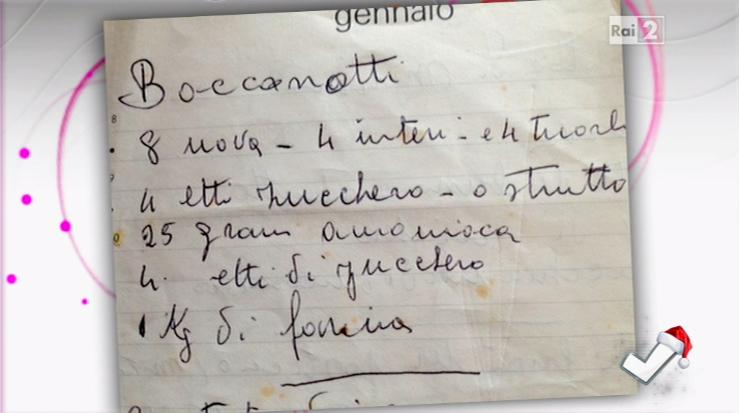 gennaio
Rai 2
Boccanotti
8 uova - 4 interi - e 4 tuorli
4 etti zucchero - o strutto
25 gram amonioca
4. etti di zucchero
1 Kg di farina